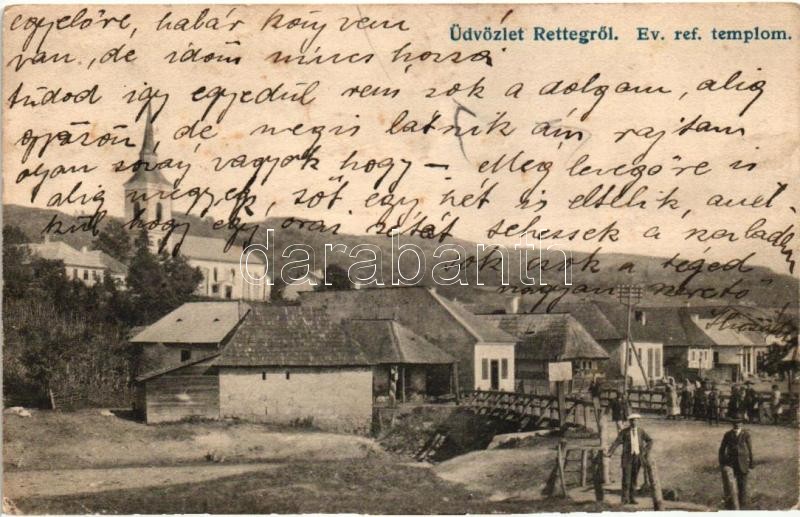 Üdvözlet Rettegről. Ev. ref. templom.
egyelőre, habár könyvem
van, de időm nincs hozzá
tudod így egyedül sok a dolgom, alig
győzöm, de mégis látszik ám rajtam
olyan vagyok hogy – Még levegőre is
alig megyek, sőt egy hét is eltelik, anél-
kül hogy egy órai sétát tehessek a
sok a téged
nagyon szerető
darabanth